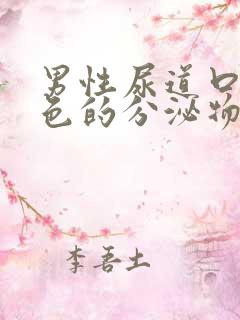 男性尿道口
色的分泌物
李吾土